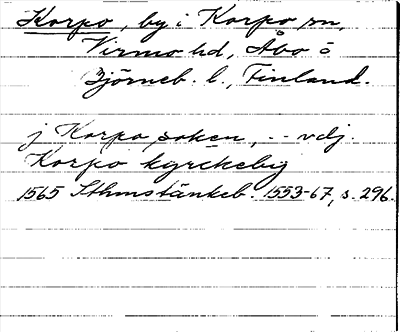 Korpo, by i Korpo sn,
Virmo hd, Åbo ö
Björneb. l., Finland.
j Korpo soken, -- vdj.
Korpo kyrckeby
1565 Sthmstänkeb. 1553-67, s. 296.